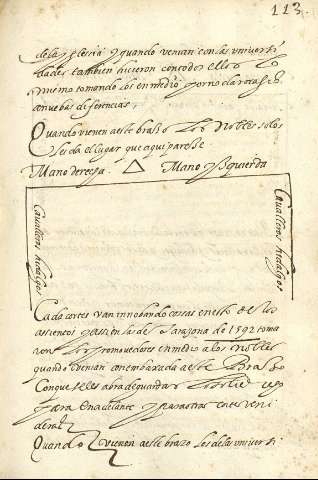 113.
de la yglesia y quando venian con las universi
dades tambien hicieron con todos ellos lo
mismo tomando los en medio por no dar ocasion
a nuebas diferencias,
Quando vienen a este brazo los nobles solos
se les da el lugar que aqui paresse
Mano derecha. △ Mano ysquierda
Cavalleros hidalgos
Cavalleros hidalgos
Cada cortes van innobando cossas en esto de los
assientos y assi en las de Tarazona de 1592 toma
ron los promovedores en medio a los nobles
quando venian con embaxada a este Brazo
Con que se les abra de guardar
para en adelante y para otras cortes veni
deras
Quando vienen a este brazo los de las universi.